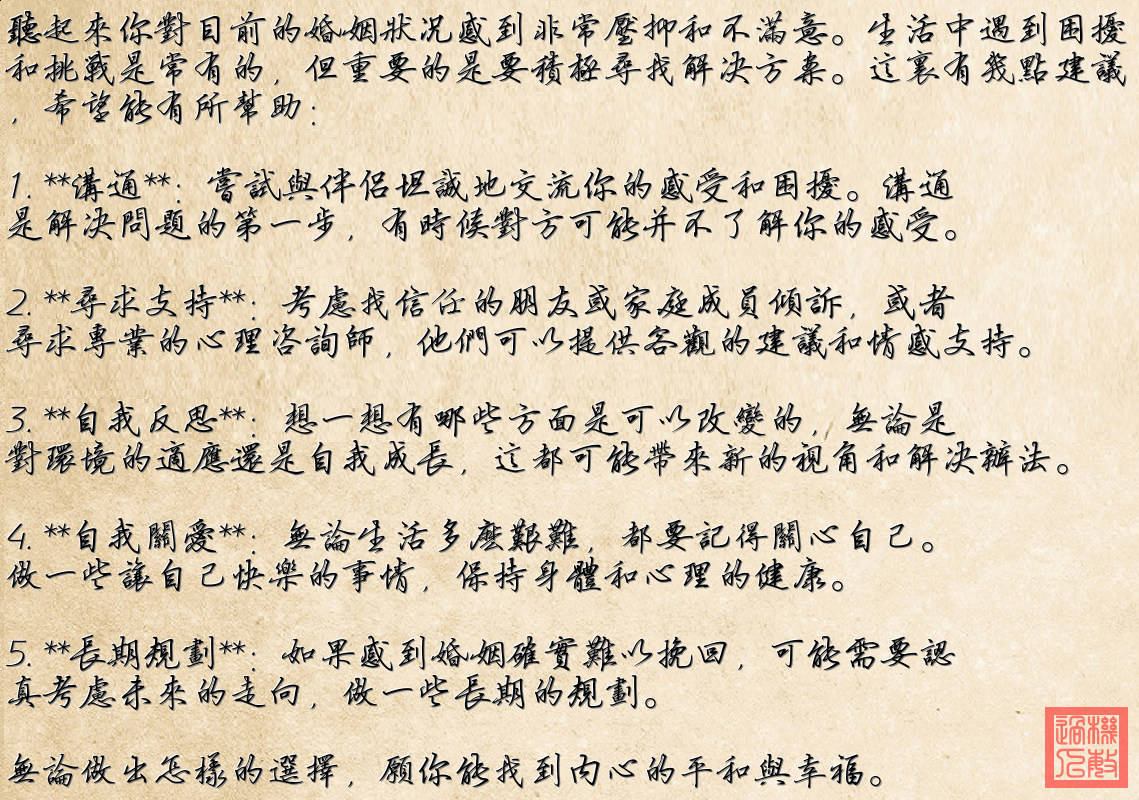 聽起來你對目前的婚姻狀况感到非常壓抑和不滿意。生活中遇到困擾
和挑戰是常有的，但重要的是要積極尋找解决方案。這裏有幾點建議
，希望能有所幫助：
1. **溝通**：嘗試與伴侣坦誠地交流你的感受和困擾。溝通
是解决問題的第一步，有時候對方可能并不了解你的感受。
2. **尋求支持**：考慮找信任的朋友或家庭成員傾訴，或者
尋求專業的心理咨詢師，他們可以提供客觀的建議和情感支持。
3. **自我反思**：想一想有哪些方面是可以改變的，無論是
對環境的適應還是自我成長，這都可能帶來新的視角和解决辦法。
4. **自我關愛**：無論生活多麽艱難，都要記得關心自己。
做一些讓自己快樂的事情，保持身體和心理的健康。
5. **長期規劃**：如果感到婚姻確實難以挽回，可能需要認
真考慮未來的走向，做一些長期的規劃。
無論做出怎樣的選擇，願你能找到内心的平和與幸福。